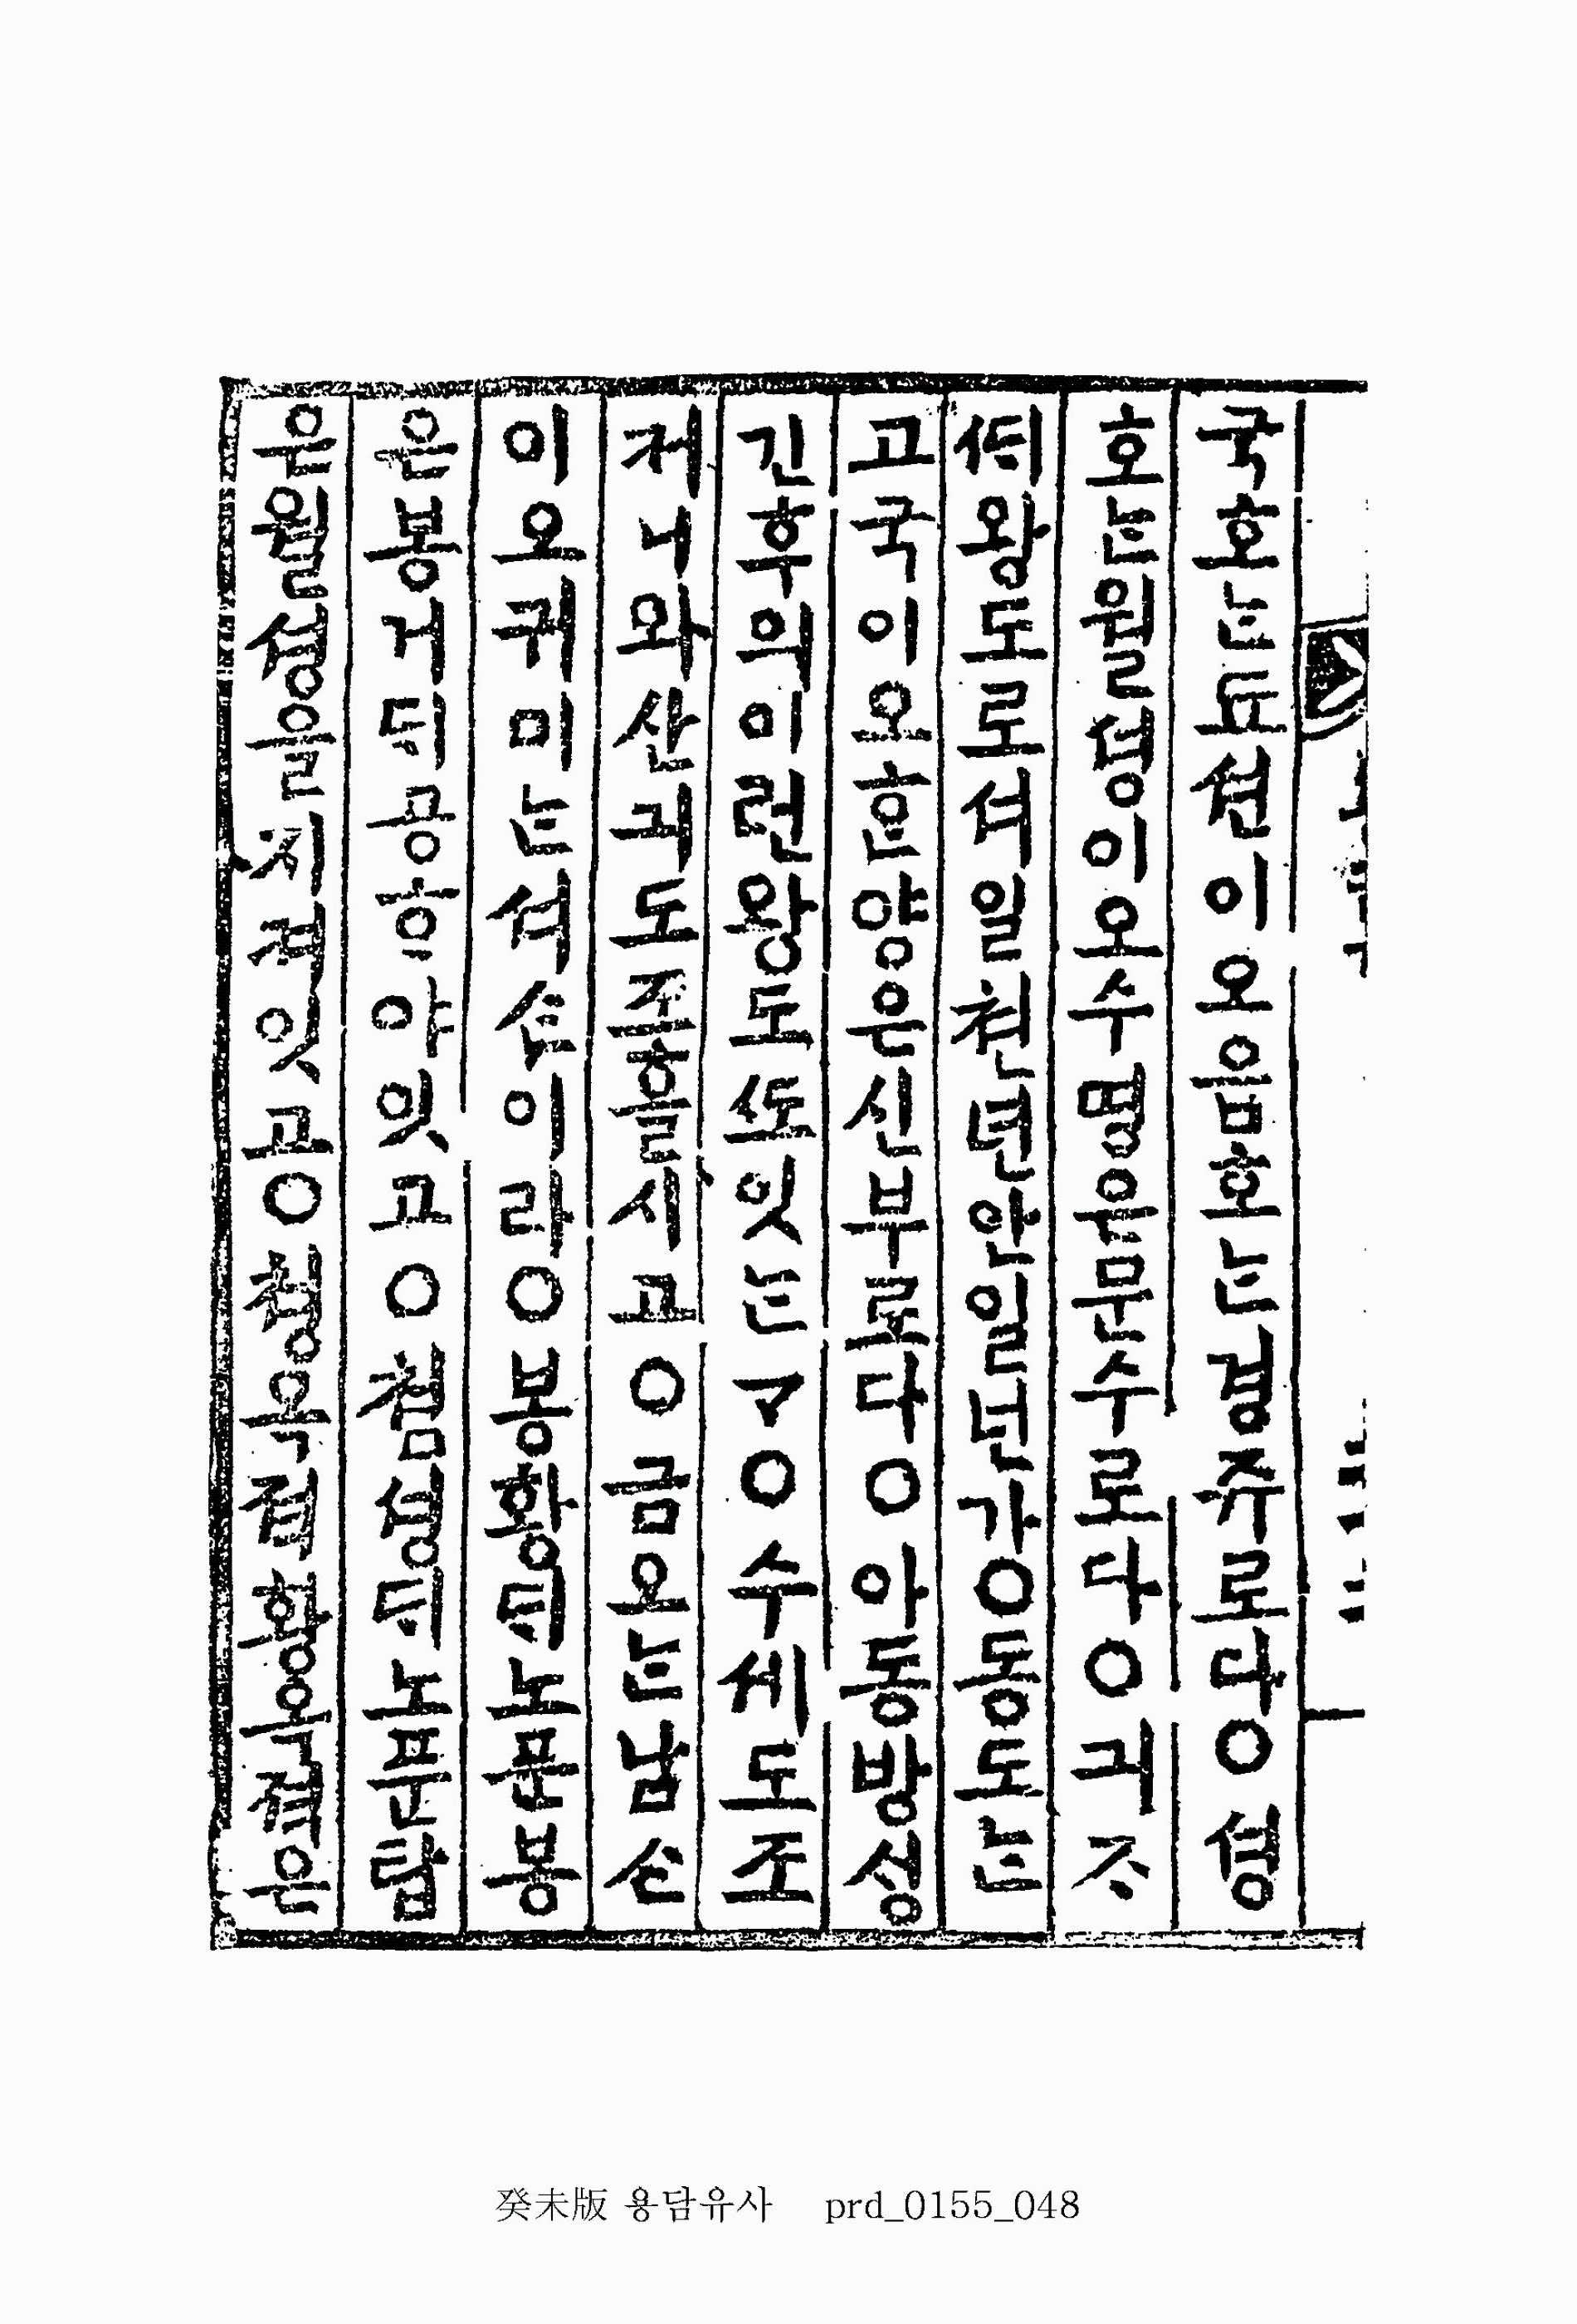 국호ᄂᆞᆫ됴션이오읍호ᄂᆞᆫ경쥬로다○셩
호ᄂᆞᆫ월셩이오수명은문수로다○긔ᄌᆞ
ᄯᆡ왕도로셔일쳔년안일넌가○동도ᄂᆞᆫ
고국이오ᄒᆞᆫ양은신부로다○아동방성
긴후의이런왕도ᄯᅩ잇ᄂᆞᆫᄀᆞ○수세도조
커니와산긔도조흘시고○금오ᄂᆞᆫ남ᄉᆞᆫ
이오귀미ᄂᆞᆫ셔ᄉᆞᆫ이라○봉황ᄃᆡ노푼봉
은봉거ᄃᆡ공ᄒᆞ야잇고○쳠셩ᄃᆡ노푼탑
은월셩을지켜잇고○쳥옥젹황옥젹은
癸未版 용담유사 prd_0155_048